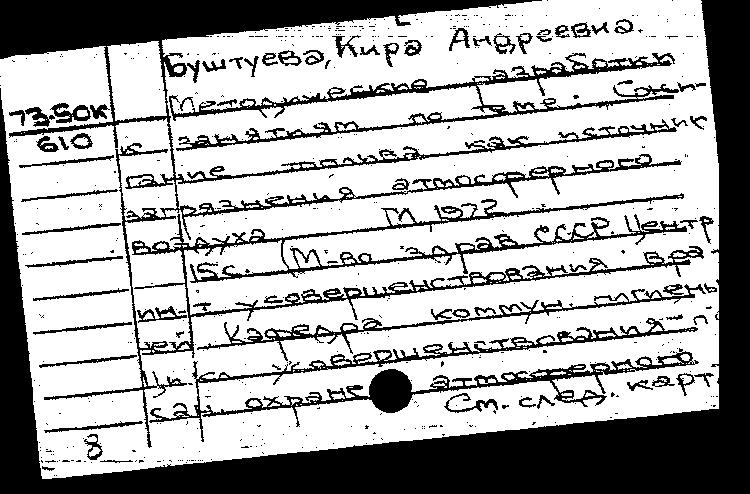 Буштуева, Кира Андреевна.
73.50К
610
Методические разработки
к занятиям по теме: Сжи-
гание топлива как источник
загрязнения атмосферного
воздуха М, 1972
15с. (М-во здрав СССР. Центр
ин-т усовершенствования вра-
чей Кафедра коммун. гигиены
Цикл усовершенствования п
сан. охране атмосферного
См. след. карт.
8